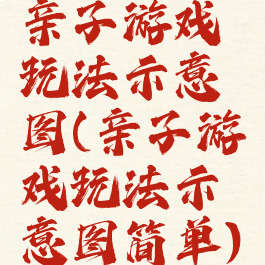 亲子游戏
玩法示意
图(亲子游
戏玩法示
意图简单)